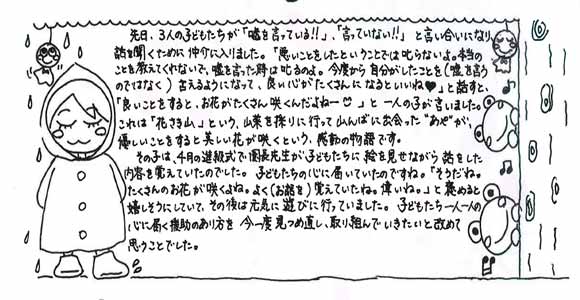 先日、3人の子どもたちが「嘘を言っている!!」、「言っていない!!」と言い合いになり、
話を聞くために仲介に入りました。「悪いことをしたということでは叱らないよ。本当の
ことを教えてくれないで、嘘を言った時は叱るのよ。今度から自分がしたことを(嘘を言う
のではなく)言えるようになって、良い心がたくさんになるといいね♥」と話すと、
「良いことをすると、お花がたくさん咲くんだよねー♡」と一人の子が言いました。
これは「花さき山」という、山菜を採りに行って山んばに出会った"あや"が、
優しいことをすると美しい花が咲くという、感動の物語です。
その子は、4月の進級式で園長先生が子どもたちに絵を見せながら話をした
内容を覚えていたのでした。子どもたちの心に届いていたのですね。「そうだね。
たくさんのお花が咲くよね。よく(お話を)覚えていたね。偉いね。」と褒めると
嬉しそうにしていて、その後は元気に遊びに行っていました。子どもたち一人一人の
心に届く援助のあり方を今一度見つめ直し、取り組んでいきたいと改めて
思うことでした。